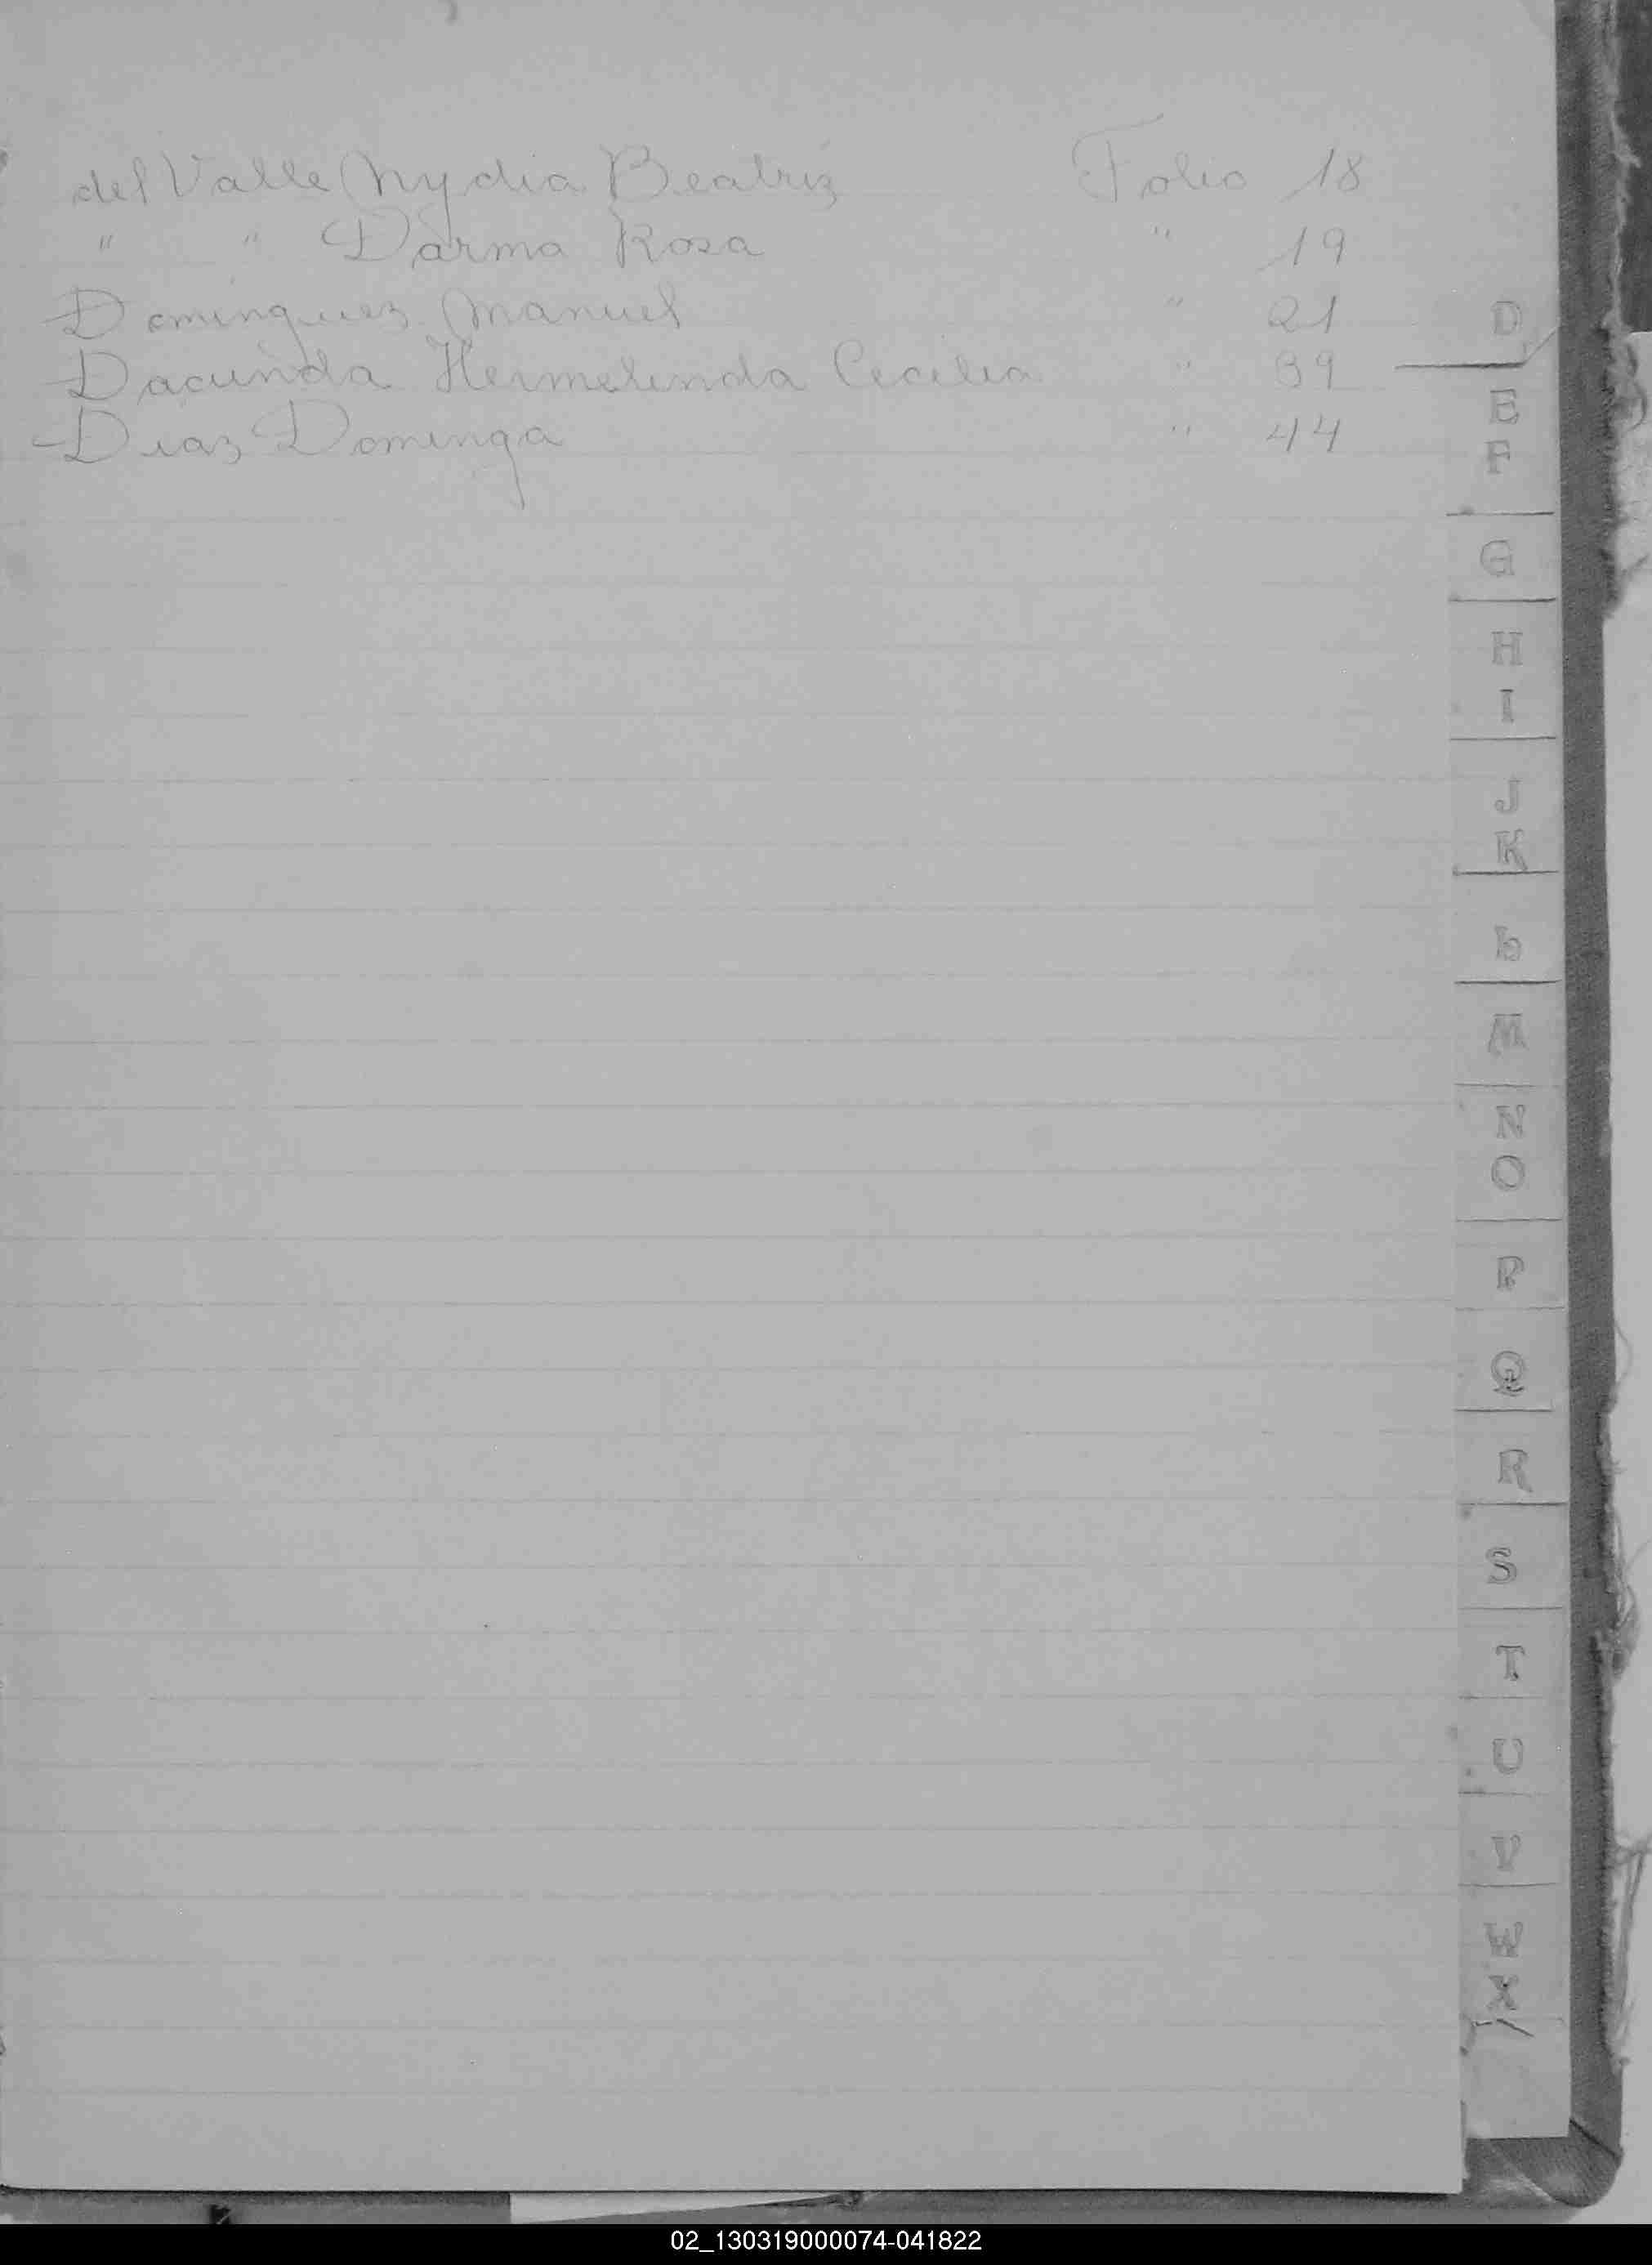 del Valle Nydia Beatriz Folio 18
" " Darma Rosa " 19
Dominguez Manuel " 21
Dacunda Hermelinda Cecilia " 39
Diaz Dominga " 44
D
E
F
G
H
I
J
K
L
M
N
O
P
Q
R
S
T
U
V
W
X
02_130319000074-041822